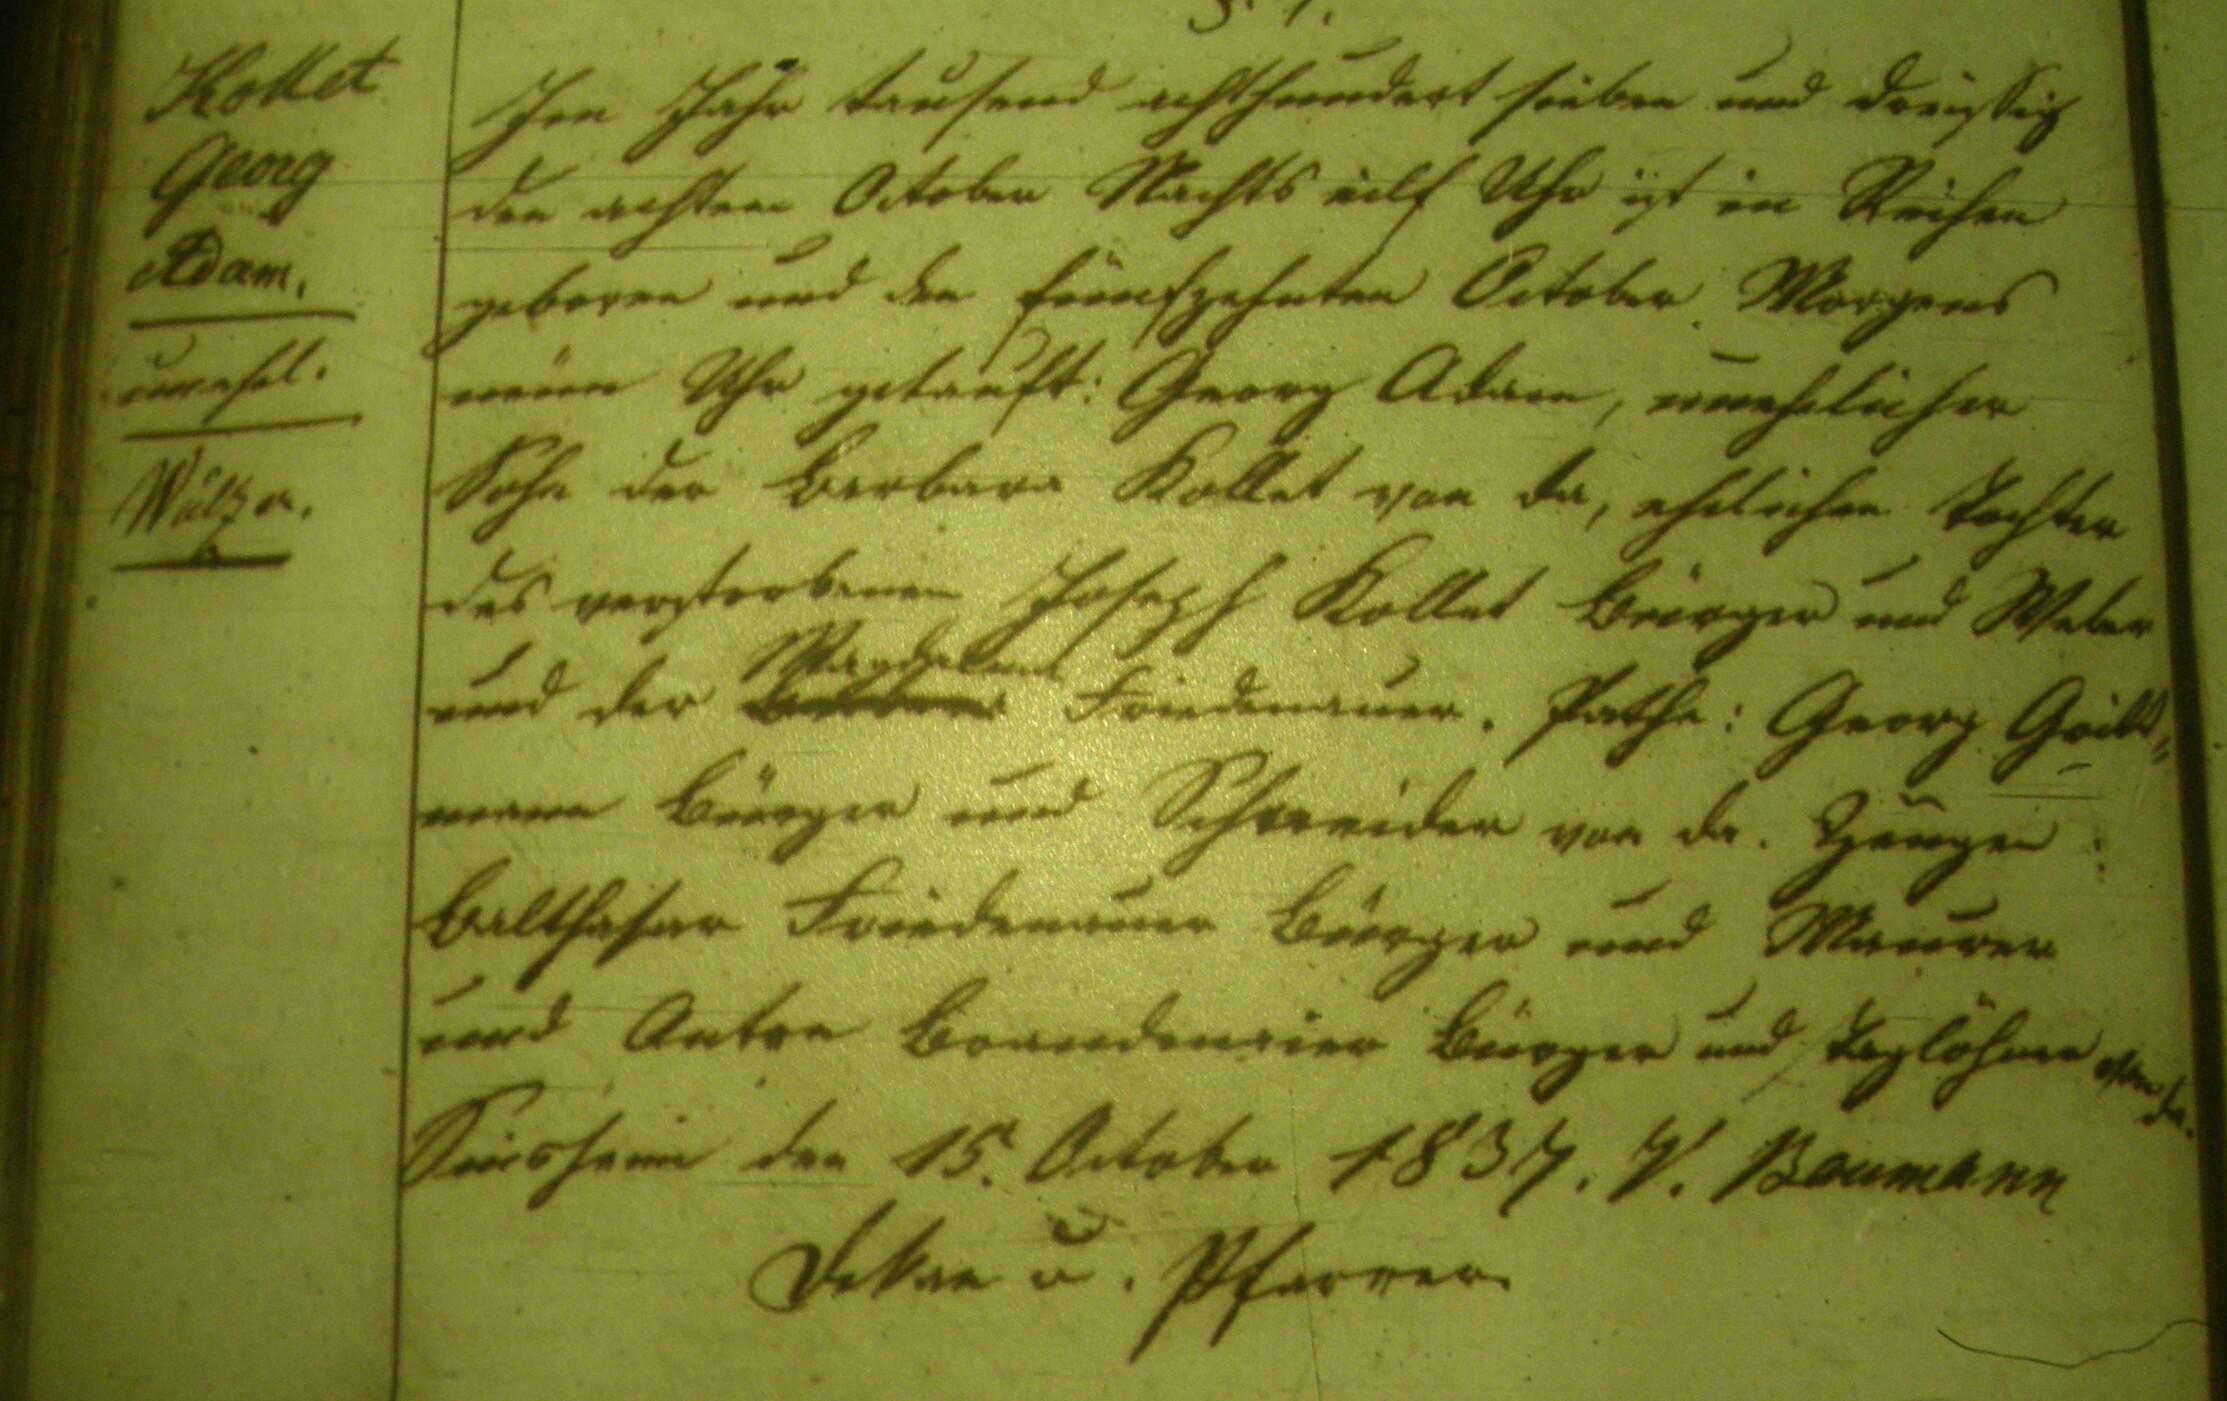 Kollet
Georg
Adam.
unehel.
Im Jahr tausend achthundert sieben und dreißig
den achten October Nachts eilf Uhr ist in Reihen
geboren und den fünfzehnten October Morgens
neun Uhr getauft: Georg Adam, unehelicher
Sohn der Barbara Kollet von da, ehelichen Tochter
des verstorbenen Joseph Kollet Bürger und Weber
und der Magdalena Friedenauer. Pathe: Georg
mann Bürger und Schneider von da. Zeugen:
Balthasar Friedenauer Bürger und Maurer
und Anton Brandenrier Bürger und Taglöhner von da.
Sinsheim den 15. October 1837. V. Baumann
Dekan u. Pfarrer.